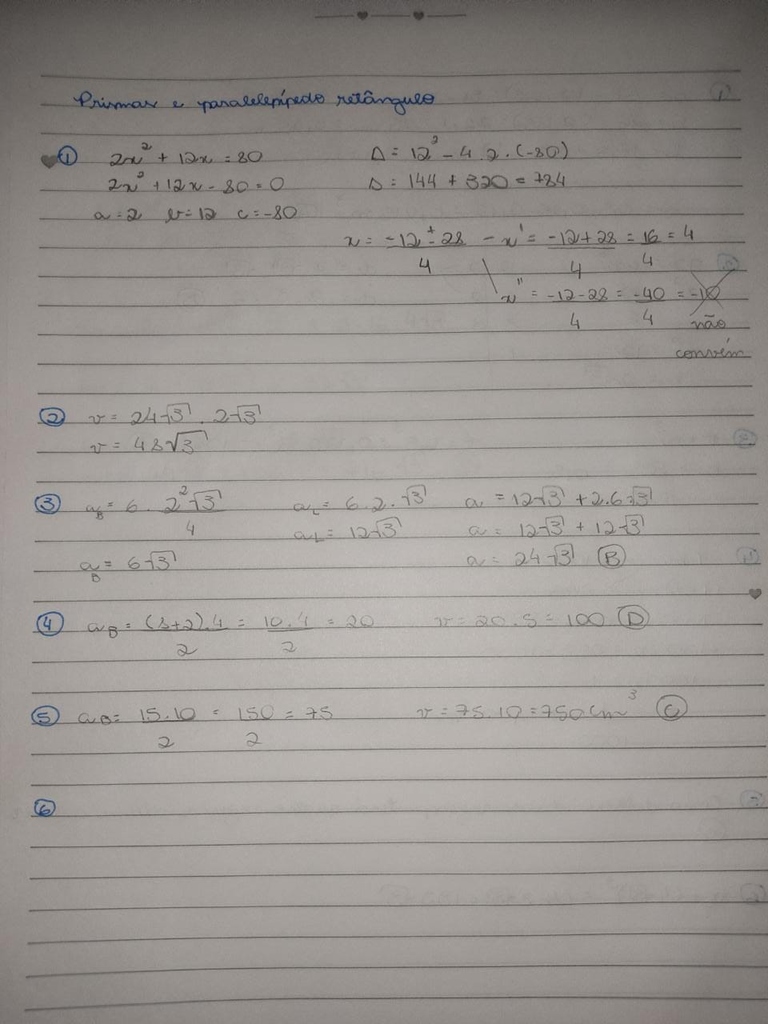 Prismas e paralelepípedo retângulo
① 2x² + 12x = 80
2x² + 12x - 80 = 0
a = 2 b = 12 c = -80
Δ = 12² - 4 . 2 . (-80)
Δ = 144 + 320 = 784
x = -12 ± 28 / 4 - x' = -12 + 28 / 4 = 16 / 4 = 4
x'' = -12 - 28 / 4 = -40 / 4 = -10 não
convém
② v = 24√3 . 2√3
v = 48√3
③ aB = 6 . 2²√3 / 4
aB = 6√3
aL = 6 . 2 . √3
aL = 12√3
a = 12√3 + 2.6√3
a = 12√3 + 12√3
a = 24√3 Ⓑ
④ aB = (8+2).4 / 2 = 10.4 / 2 = 20 v = 20 . 5 = 100 Ⓓ
⑤ aB = 15.10 / 2 = 150 / 2 = 75 v = 75.10 = 750 cm³ Ⓒ
⑥